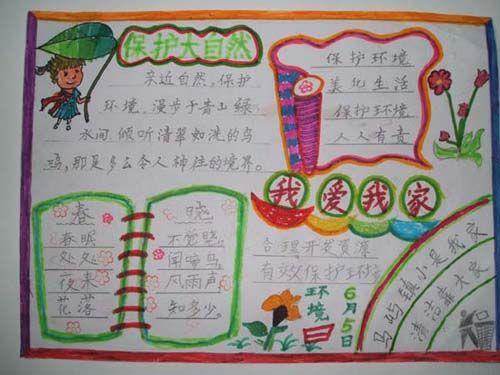 保护大自然
亲近自然,保护
环境。漫步于青山绿
水间倾听清翠如洗的鸟
鸣,那是多么令人神往的境界。
保护环境
美化生活
保护环境
人人有责
我爱我家
春晓
春眠不觉晓。
处处闻啼鸟
夜来风雨声
花落知多少。
合理开发资源
有效保护环境
环境日
6月5日
马屿镇小是我家
清洁靠大家